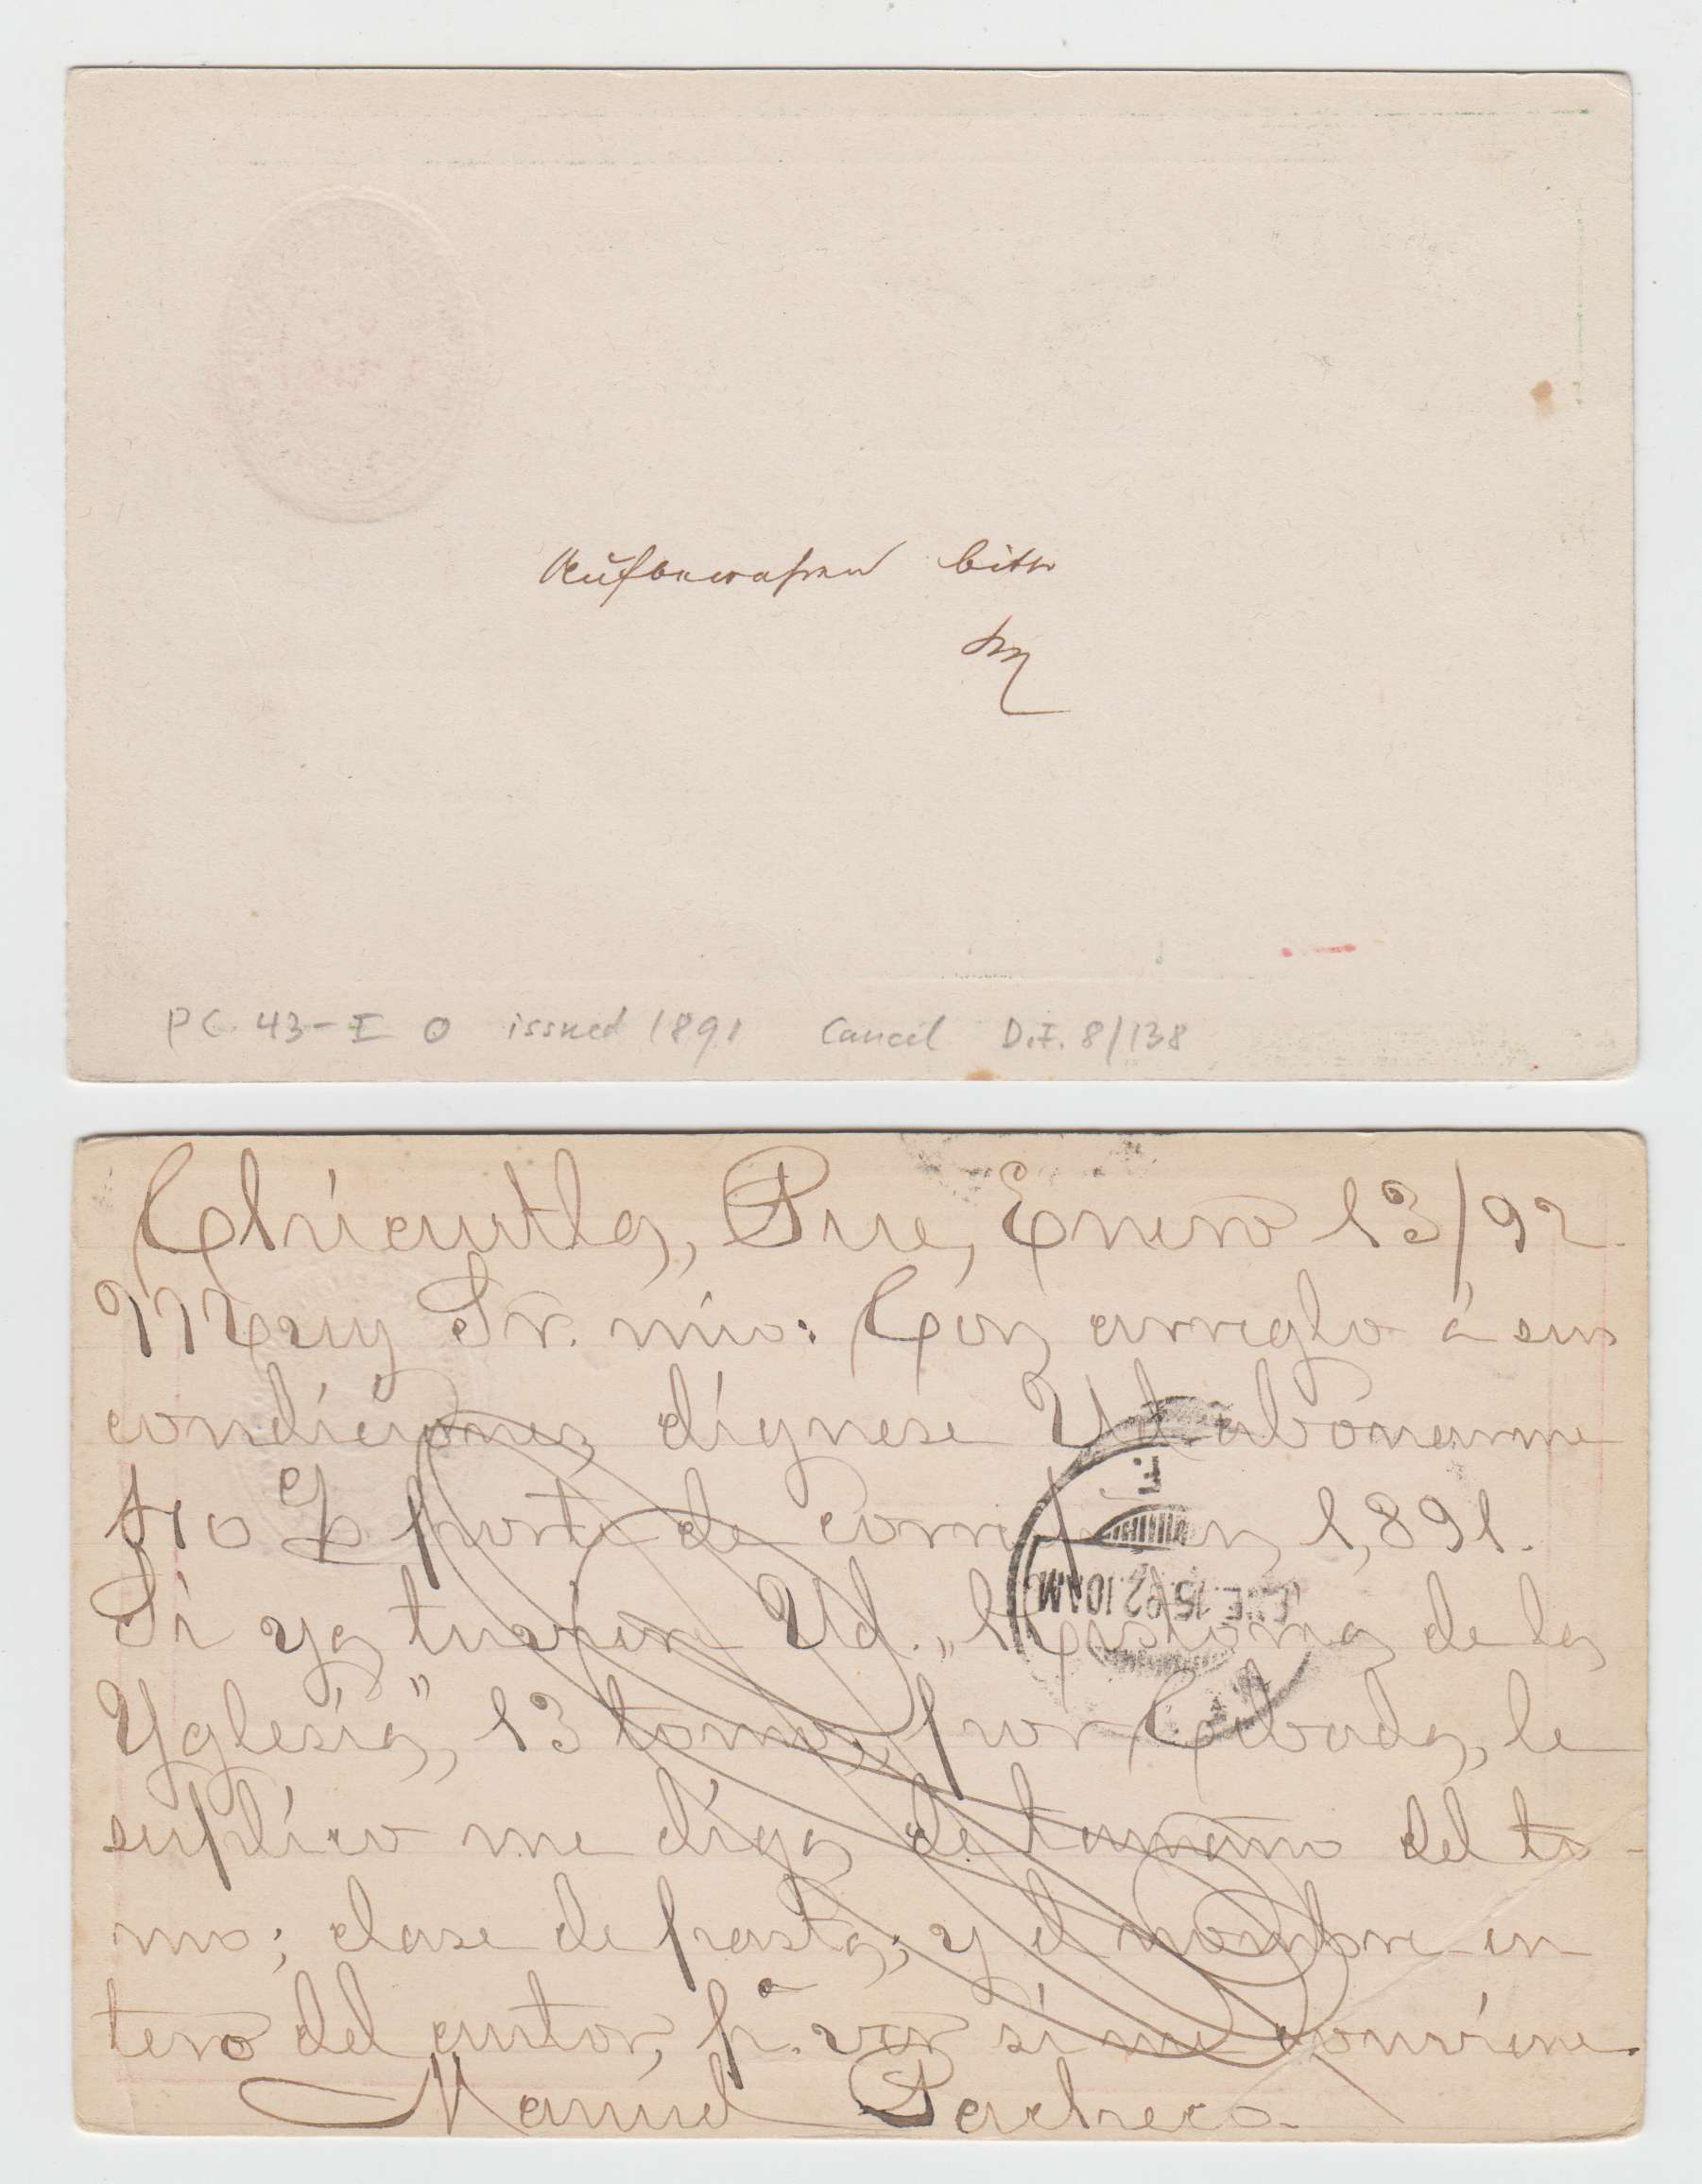 Aufbewahren bitte
PC. 43-I O issued 1891 Cancel D.F. 8/138
Chicautla, Pue, Enero 13/92.
Muy Sr. mio: Con arreglo á sus
condiciones, dígnese Ud. abonarme
porte de correo en 1,891.
Si ya tuvier Ud. "Historia de la
Yglesia", 13 tomos, por le
suplico me diga de tamaño del to-
mo; clase de pasta; y el nombre en
tero del autor, pa. ver si me conviene.
Manuel Pacheco.
F.
ENE.15.92.10AM